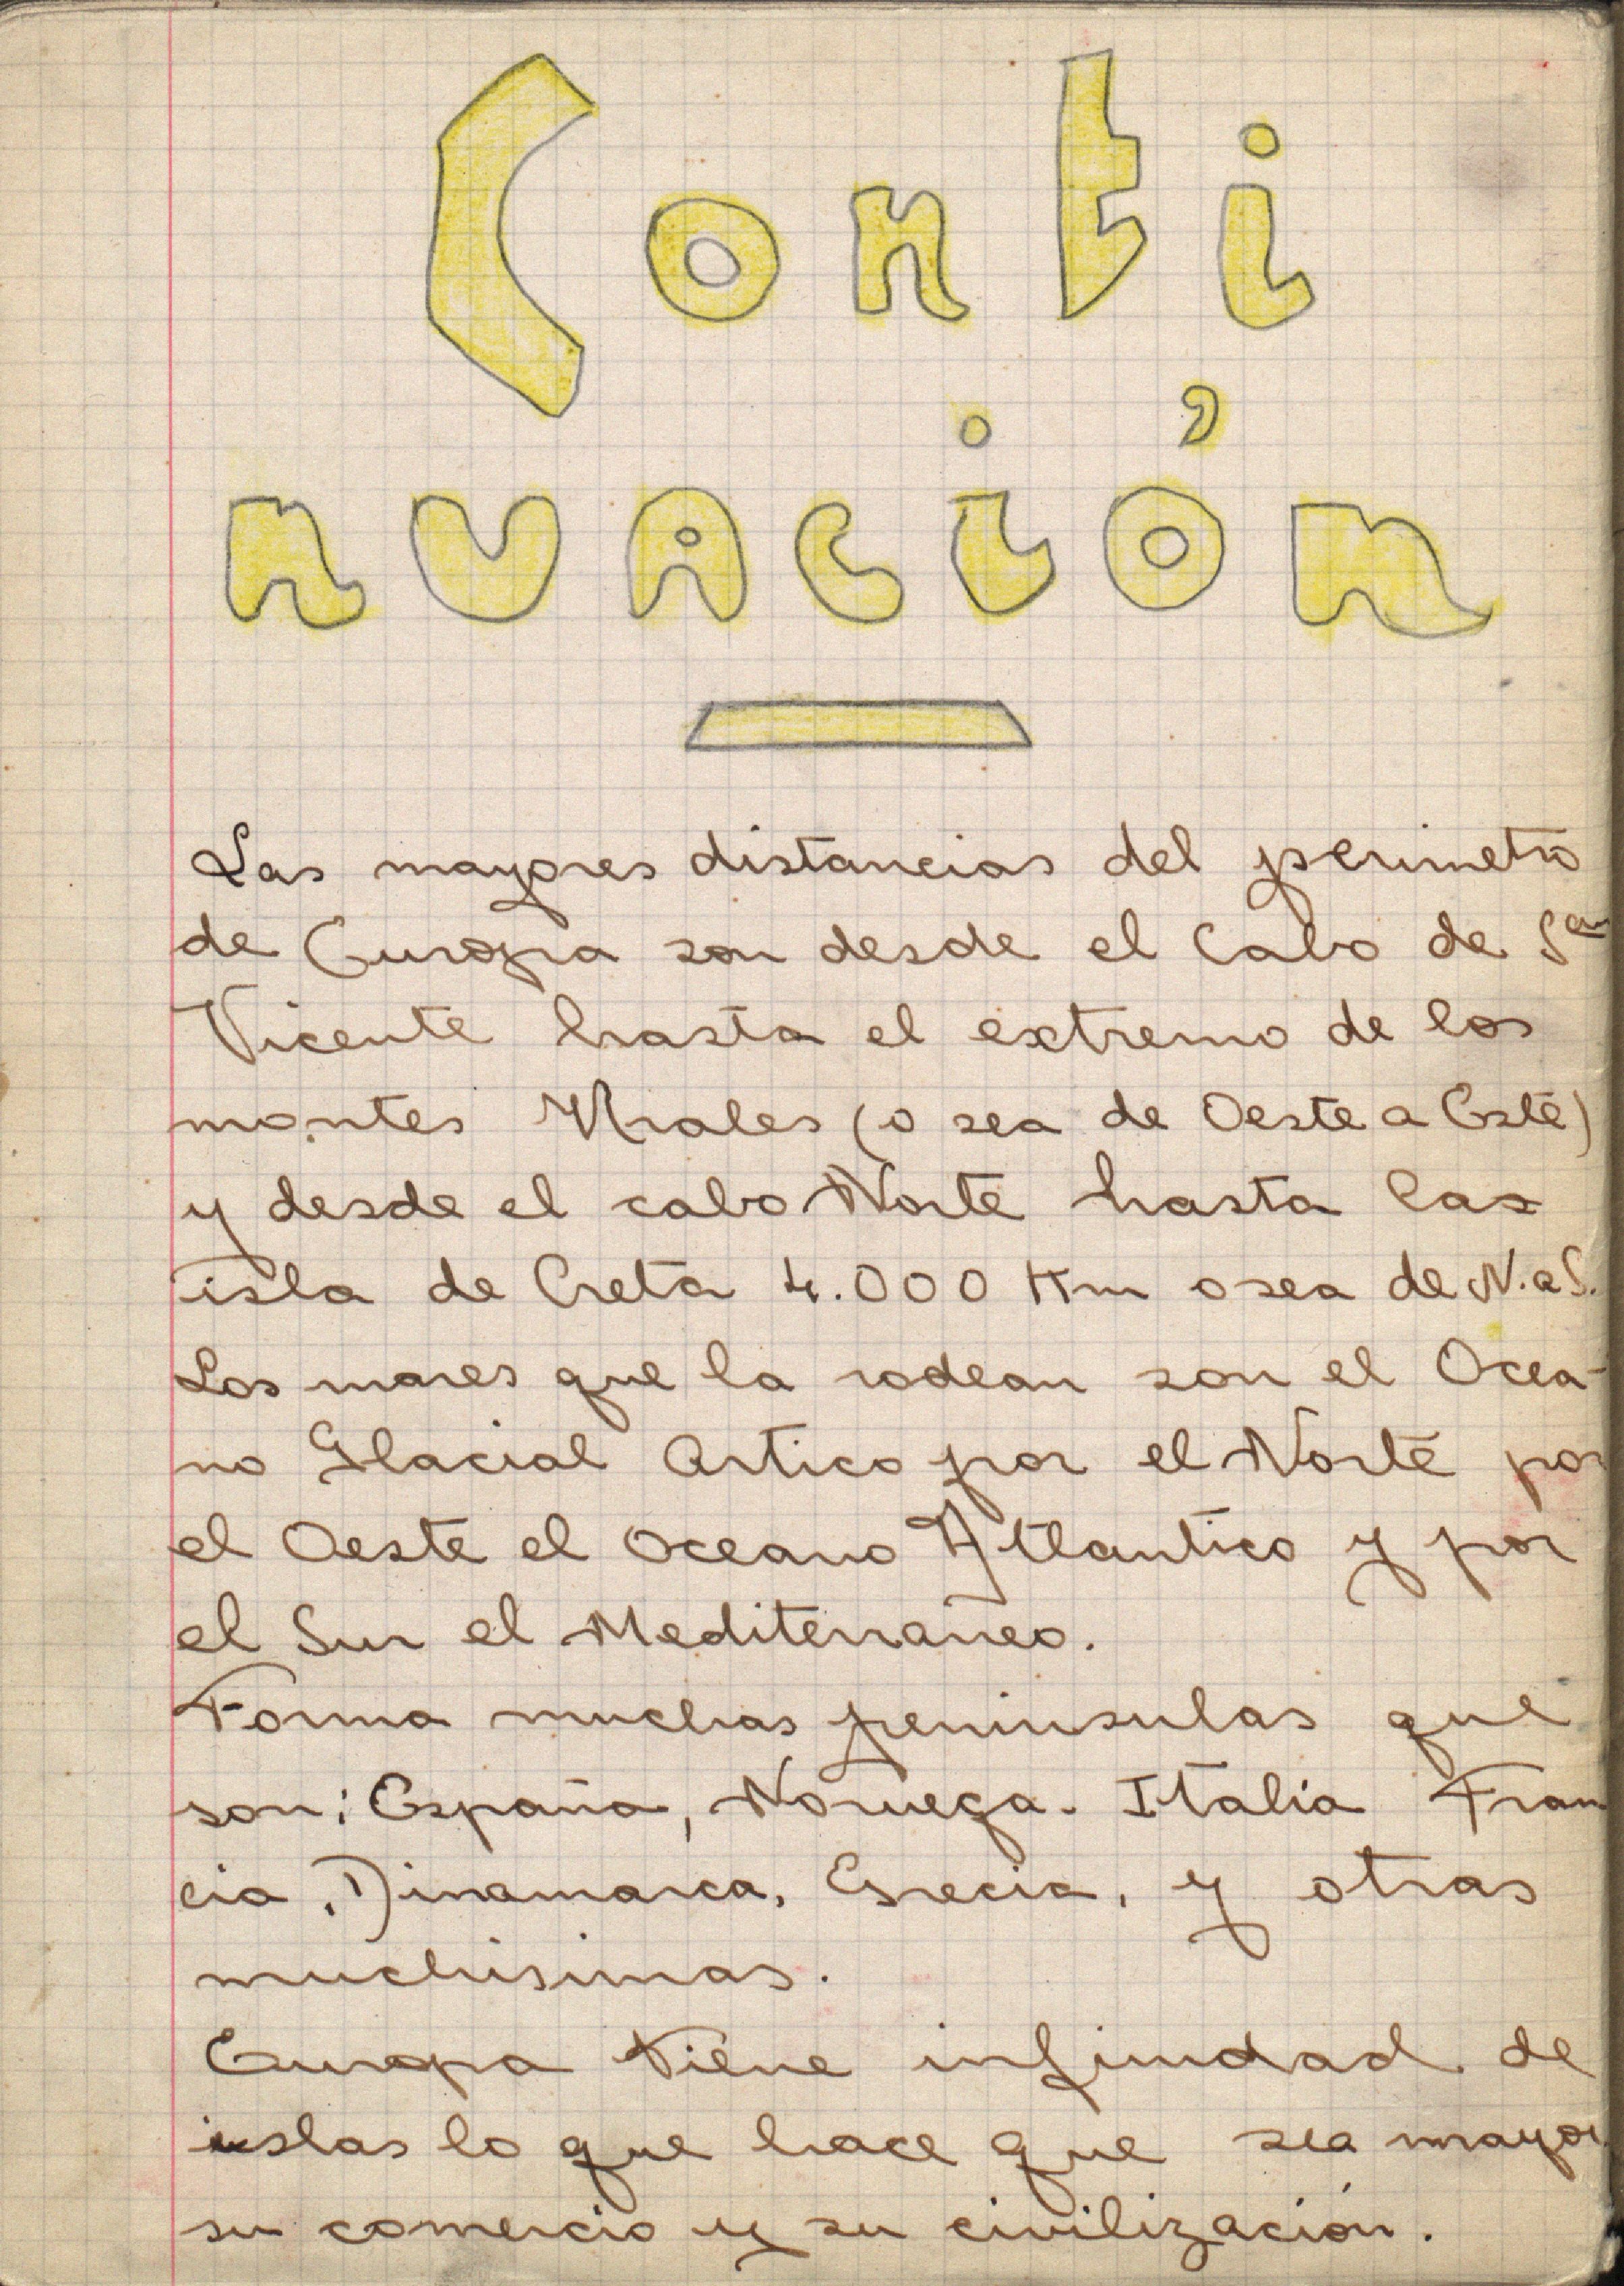 Conti
nuación
Las mayores distancias del perimetro
de Europa son desde el Cabo de San
Vicente hasta el extremo de los
montes Urales (o sea de Oeste a Este)
y desde el cabo Norte hasta las
isla de Creta 4.000 Km o sea de N. a S.
Los mares que la rodean son el Ocea-
no Glacial Artico por el Norte por
el Oeste el Oceano Atlantico y por
el Sur el Mediterraneo.
Forma muchas peninsulas que
son: España, Noruega. Italia Fran
cia, Dinamarca, Grecia, y otras
muchisimas.
Europa tiene infinidad de
islas lo que hace que sea mayor
su comercio y su civilización.